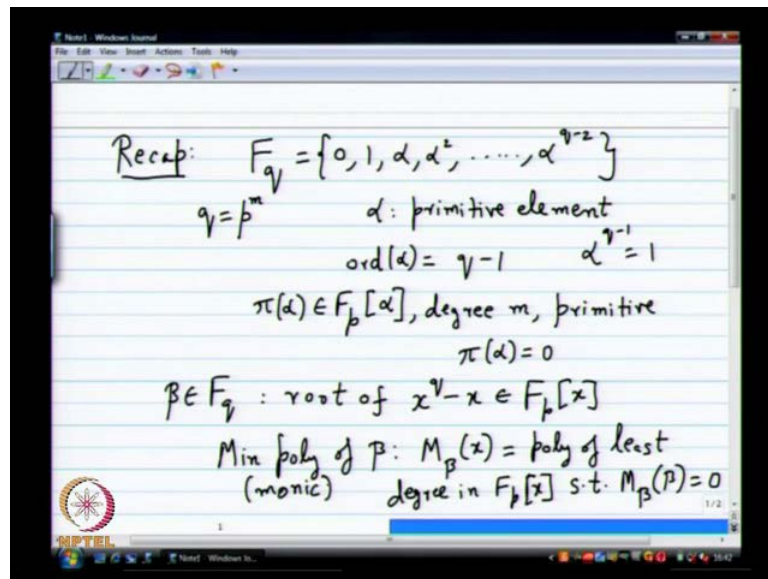 Note1 - Windows Journal
File Edit View Insert Actions Tools Help
Recap: F_q = {0, 1, α, α², ....., α^{q-2}}
q = p^m α: primitive element
ord(α) = q-1 α^{q-1} = 1
π(α) ∈ F_p[α], degree m, primitive
π(α) = 0
β ∈ F_q : root of x^q - x ∈ F_p[x]
Min poly of β: M_β(x) = poly of least
(monic) degree in F_p[x] s.t. M_β(β) = 0
1/2
1
NPTEL
Note1 - Windows Jo...
16:42